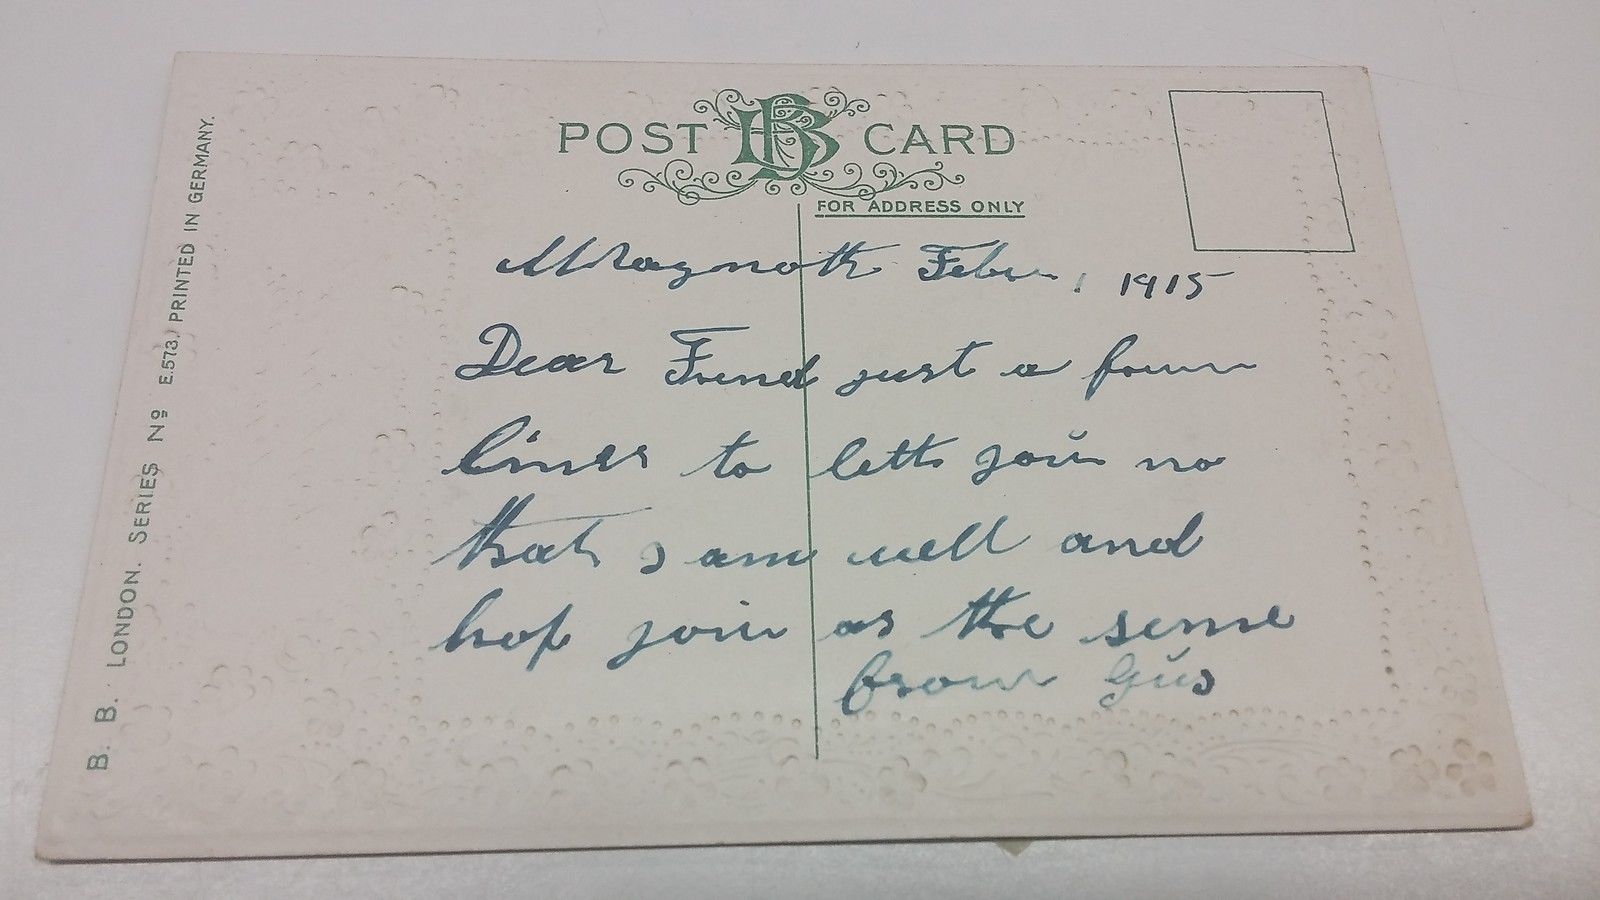 POST BB CARD
FOR ADDRESS ONLY
Febr, 1915
Dear Frend just a
lines to lett you no
that I am well and
hop you as the seme
from Gus
B. B. LONDON. SERIES No E.573. PRINTED IN GERMANY.